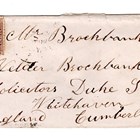 Mr Brockbank
Helder Brockbank
Solicitors Duke S
Whitehaven
gland Cumberl